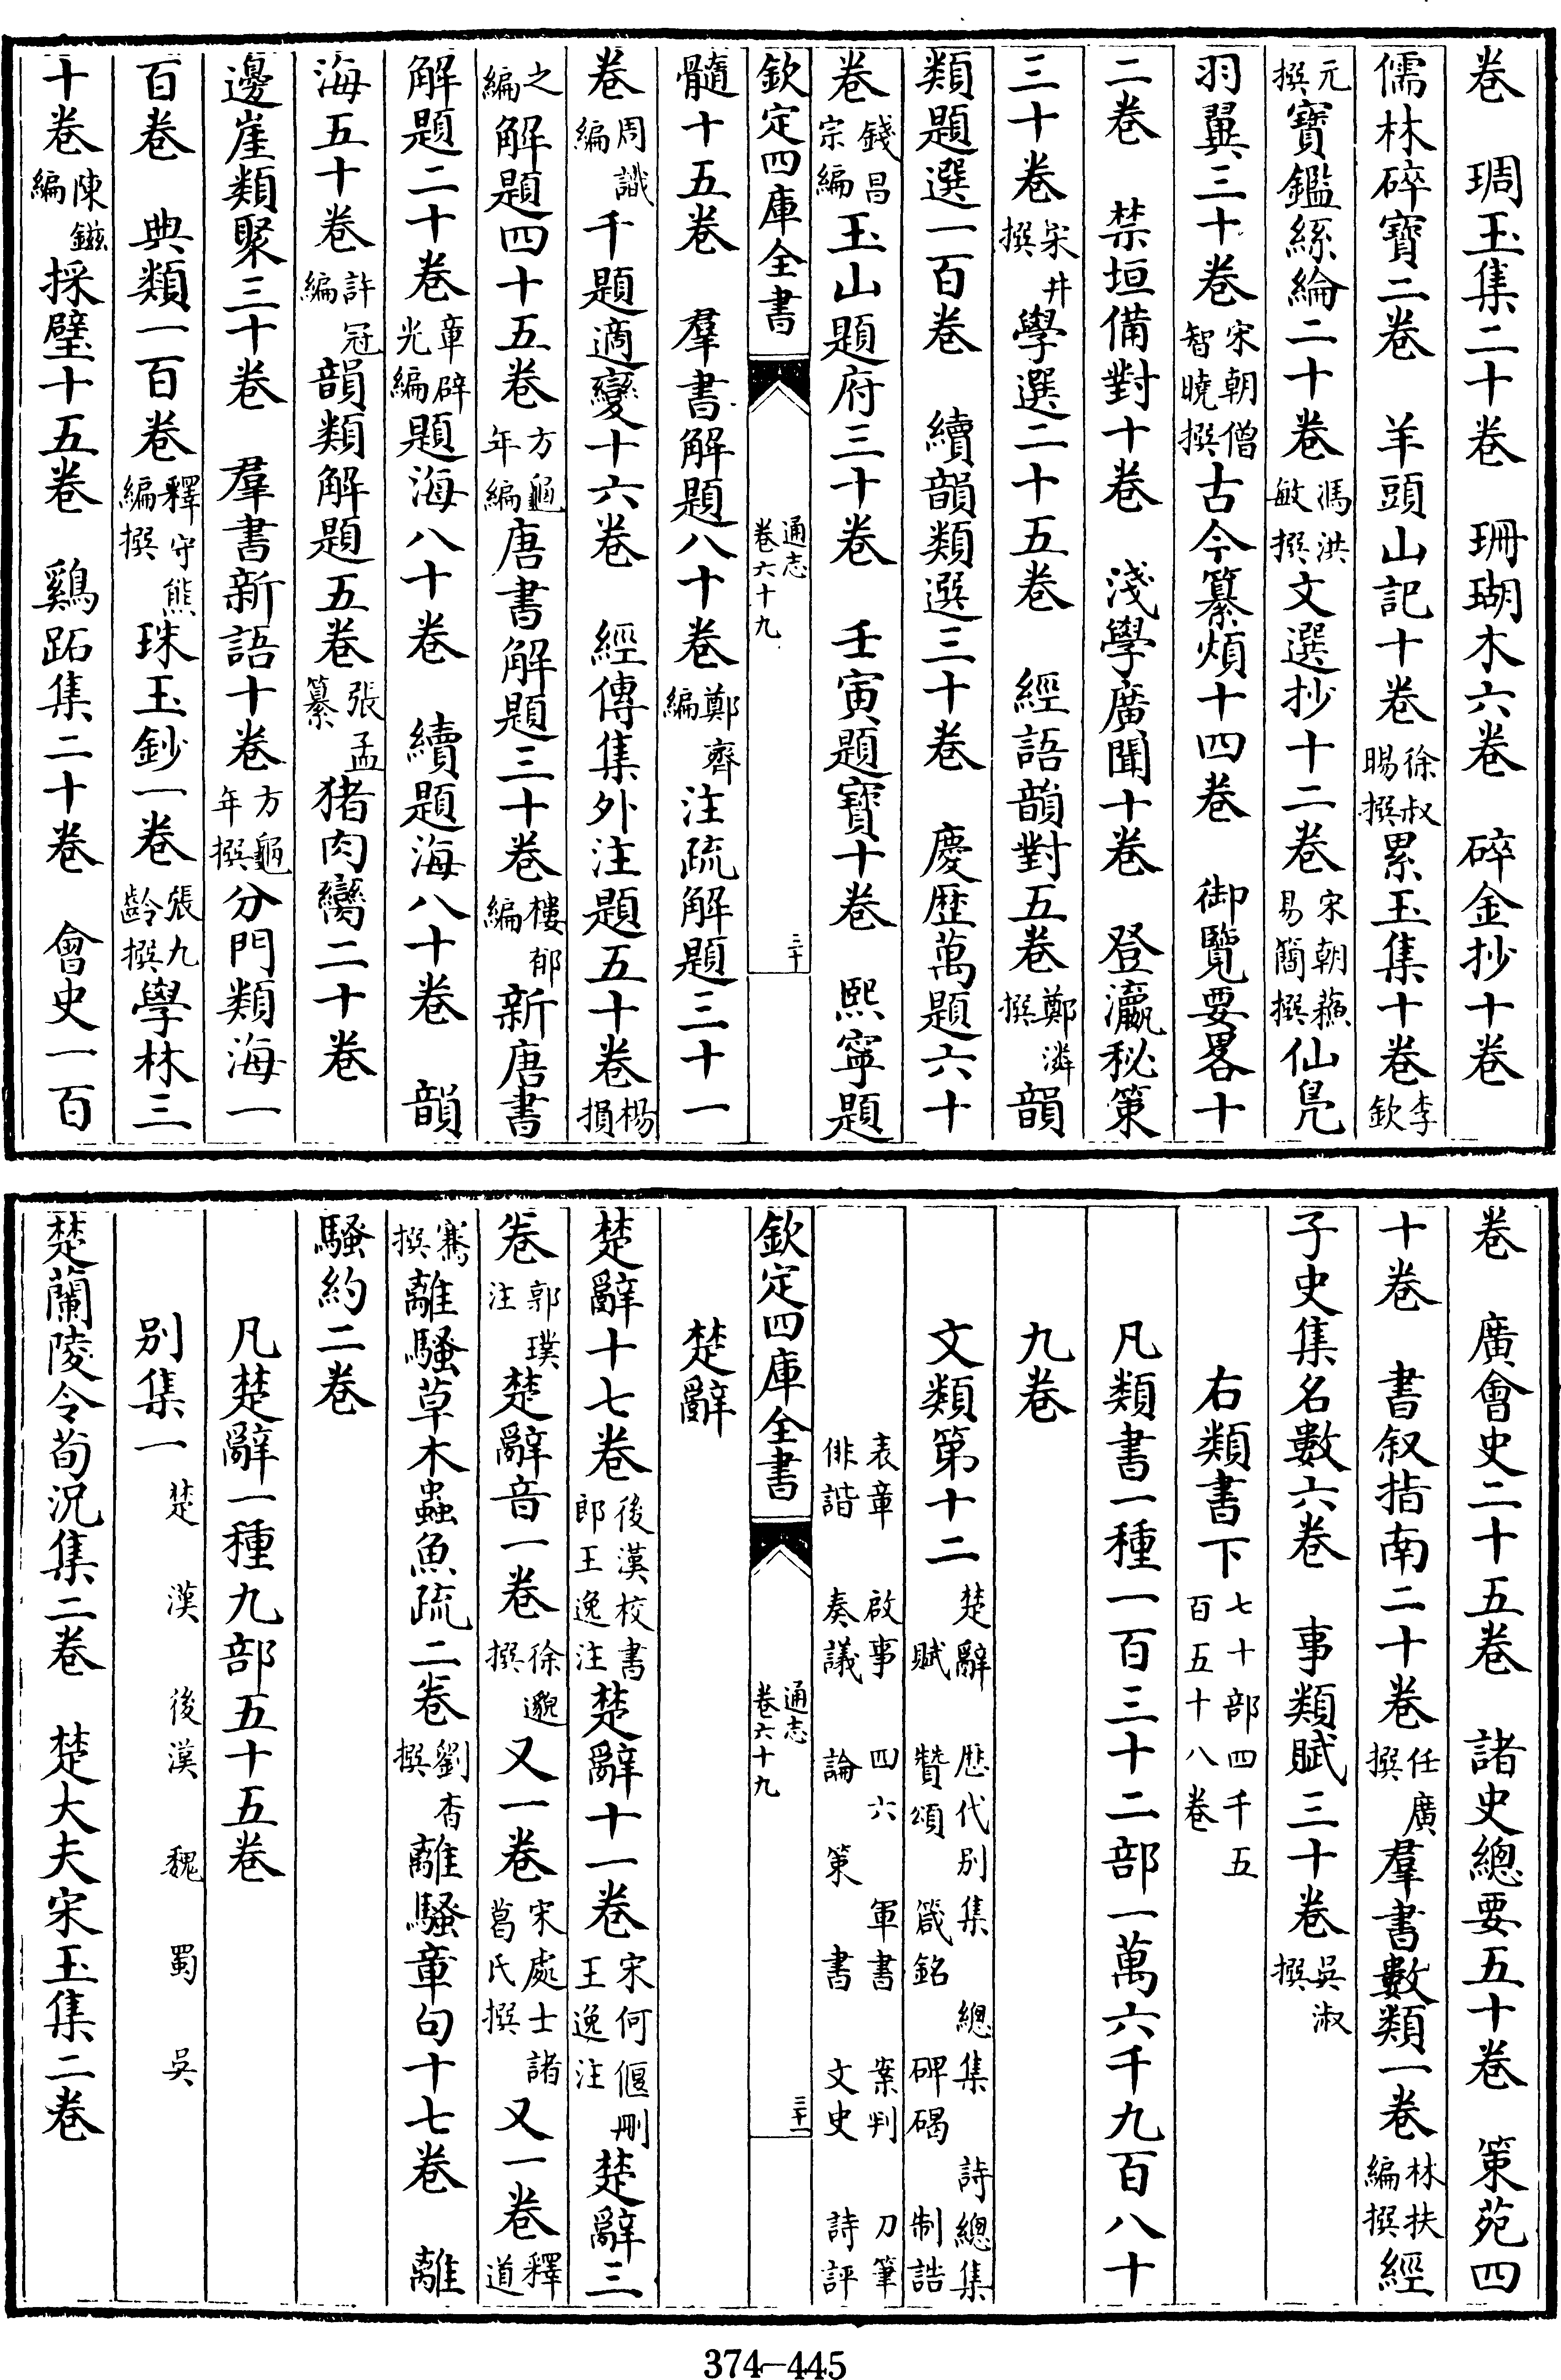 卷　琱玉集二十卷　珊瑚木六卷　碎金抄十卷
儒林碎寶二卷　羊頭山記十卷徐叔暘撰累玉集十卷李欽
元撰寶鑑絲綸二十卷馮洪敏撰文選抄十二卷宋朝蘇易簡撰仙鳧
羽翼三十卷宋朝僧智曉撰古今纂煩十四卷　御覽要畧十
二卷　禁垣備對十卷　淺學廣聞十卷　登瀛秘策
三十卷宋井撰學選二十五卷　經語韻對五卷鄭潾撰韻
類題選一百卷　續韻類選三十卷　慶歷萬題六十
卷錢昌宗編玉山題府三十卷　壬寅題寶十卷　熙寧題
欽定四庫全書　通志卷六十九　三十
髓十五卷　羣書解題八十卷鄭齊編注疏解題三十一
卷周識編千題適變十六卷　經傳集外注題五十卷楊損
之編解題四十五卷方龜年編唐書解題三十卷樓郁編新唐書
解題二十卷章辟光編題海八十卷　續題海八十卷　韻
海五十卷許冠編韻類解題五卷張孟纂猪肉臠二十卷
邊崖類聚三十卷　羣書新語十卷方龜年撰分門類海一
百卷　典類一百卷釋守熊編撰珠玉鈔一卷張九齡撰學林三
十卷陳鎡編採璧十五卷　鷄跖集二十卷　會史一百
卷　廣會史二十五卷　諸史總要五十卷　策苑四
十卷　書叙指南二十卷任廣撰羣書數類一卷林扶編撰經
子史集名數六卷　事類賦三十卷吳淑撰
右類書下七十部四千五百五十八卷
凡類書一種一百三十二部一萬六千九百八十
九卷
文類第十二　楚辭　歷代別集　總集　詩總集　賦　贊頌　箴銘　碑碣　制誥
表章　啟事　四六　軍書　案判　刀筆　俳諧　奏議　論　策　書　文史　詩評
欽定四庫全書　通志卷六十九　三十一
楚辭
楚辭十七卷後漢校書郎王逸注楚辭十一卷宋何偃刪王逸注楚辭三
卷郭璞注楚辭音一卷徐邈撰又一卷宋處士諸葛氏撰又一卷釋道
騫撰離騷草木蟲魚疏二卷劉杳撰離騷章句十七卷　離
騷約二卷
凡楚辭一種九部五十五卷
別集一　楚　漢　後漢　魏　蜀　吳
楚蘭陵令荀況集二卷　楚大夫宋玉集二卷
374-445